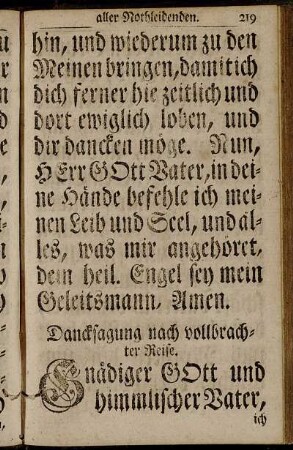 aller Nothleidenden. 219
hin, und wiederum zu den
Meinen bringen, damit ich
dich ferner hie zeitlich und
dort ewiglich loben, und
dir dancken möge. Nun,
HErr GOtt Vater, in dei-
ne Hände befehle ich mei-
nen Leib und Seel, und al-
les, was mir angehöret,
dein heil. Engel sey mein
Geleitsmann, Amen.
Dancksagung nach vollbrach-
ter Reise.
Gnädiger GOtt und
himmlischer Vater,
ich